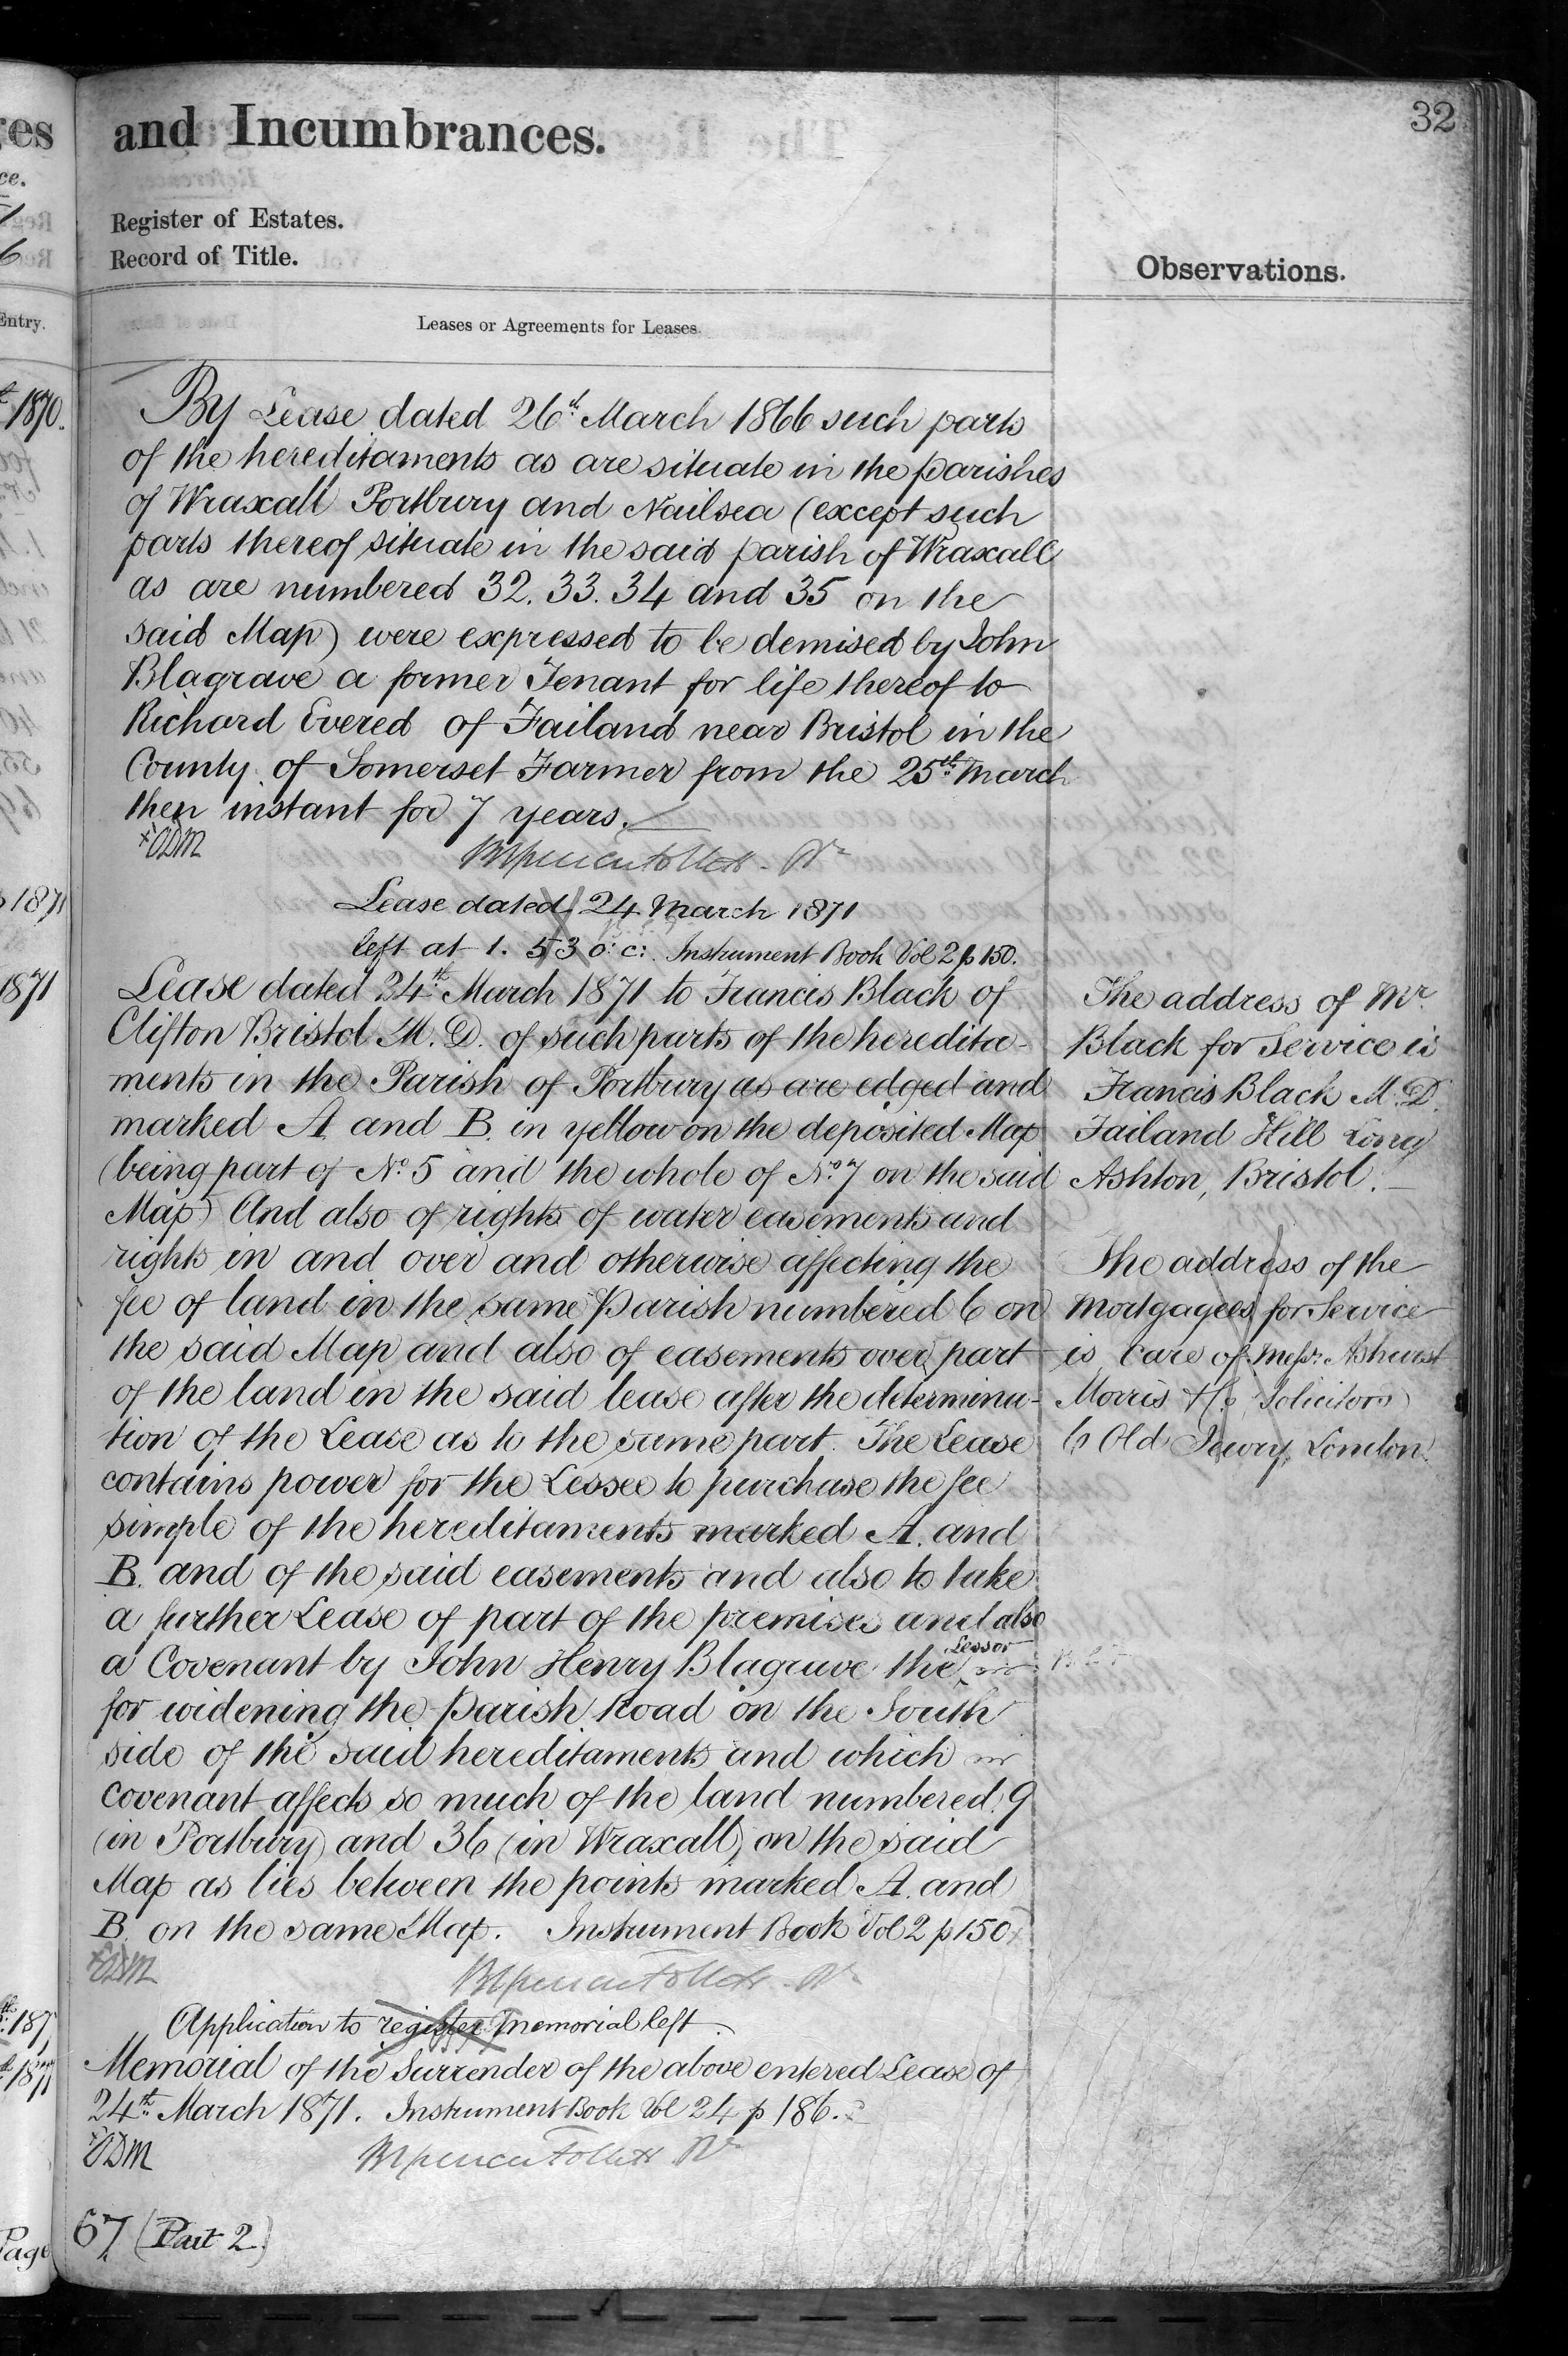 32
and Incumbrances.
Register of Estates.
Record of Title.
Observations.
Leases or Agreements for Leases.
By Lease dated 26th March 1866 such parts
of the hereditaments as are situate in the parishes
of Wraxall Portbury and Nailsea (except such
parts thereof situate in the said parish of Wraxall
as are numbered 32. 33. 34 and 35 on the
said Map) were expressed to be demised by John
Blagrave a former Tenant for life thereof to
Richard Evered of Failand near Bristol in the
County of Somerset Farmer from the 25th March
then instant for 7 years.
Lease dated 24 March 1871
left at 1. 53 o: c: Instrument Book Vol 2 p 150.
Lease dated 24th March 1871 to Francis Black of
Clifton Bristol M. D. of such parts of the heredita-
ments in the Parish of Portbury as are edged and
marked A and B. in yellow on the deposited Map
(being part of No. 5 and the whole of No. 7 on the said
Map) And also of rights of water easements and
rights in and over and otherwise affecting the
fee of land in the same Parish numbered 6 on
the said Map and also of easements over part
of the land in the said lease after the determina-
tion of the Lease as to the same part. The Lease
contains power for the Lessee to purchase the fee
simple of the hereditaments marked A. and
B. and of the said easements and also to take
a further Lease of part of the premises and also
a Covenant by John Henry Blagrave the Lessor
for widening the Parish Road on the South
side of the said hereditaments and which
covenant affects so much of the land numbered 9
(in Portbury) and 36 (in Wraxall) on the said
Map as lies between the points marked A. and
B. on the same Map. Instrument Book Vol 2 p 150
Application to register memorial left.
Memorial of the Surrender of the above entered Lease of
24th March 1871. Instrument Book Vol 24 p 186.
67 (Part 2)
The address of Mr
Black for Service is
Francis Black M. D.
Failand Hill Long
Ashton, Bristol.
The address of the
Mortgagees for Service
is Care of Messrs Ashurst
Morris & Co Solicitors
6 Old Jewry, London.